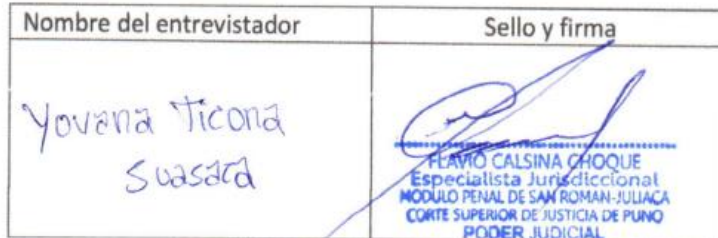 Nombre del entrevistador
Sello y firma
Yovana Ticona
Suasaca
FLAVIO CALSINA CHOQUE
Especialista Jurisdiccional
MODULO PENAL DE SAN ROMAN-JULIACA
CORTE SUPERIOR DE JUSTICIA DE PUNO
PODER JUDICIAL